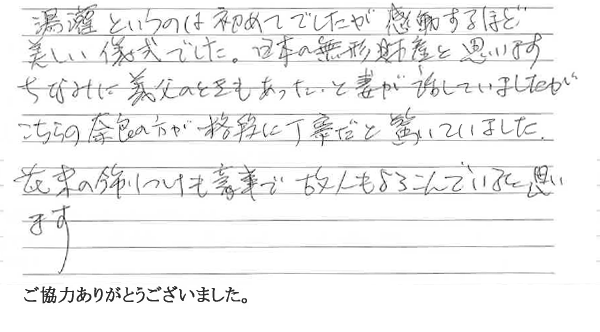 湯灌というのは初めてでしたが感動するほど
美しい儀式でした。日本の無形財産と思います
ちなみに義父のときもあった、と妻が話していましたが
こちらの奈良の方が格段に丁寧だと驚いていました。
花束の飾りつけも豪華で故人もよろこんでいると思い
ます
ご協力ありがとうございました。